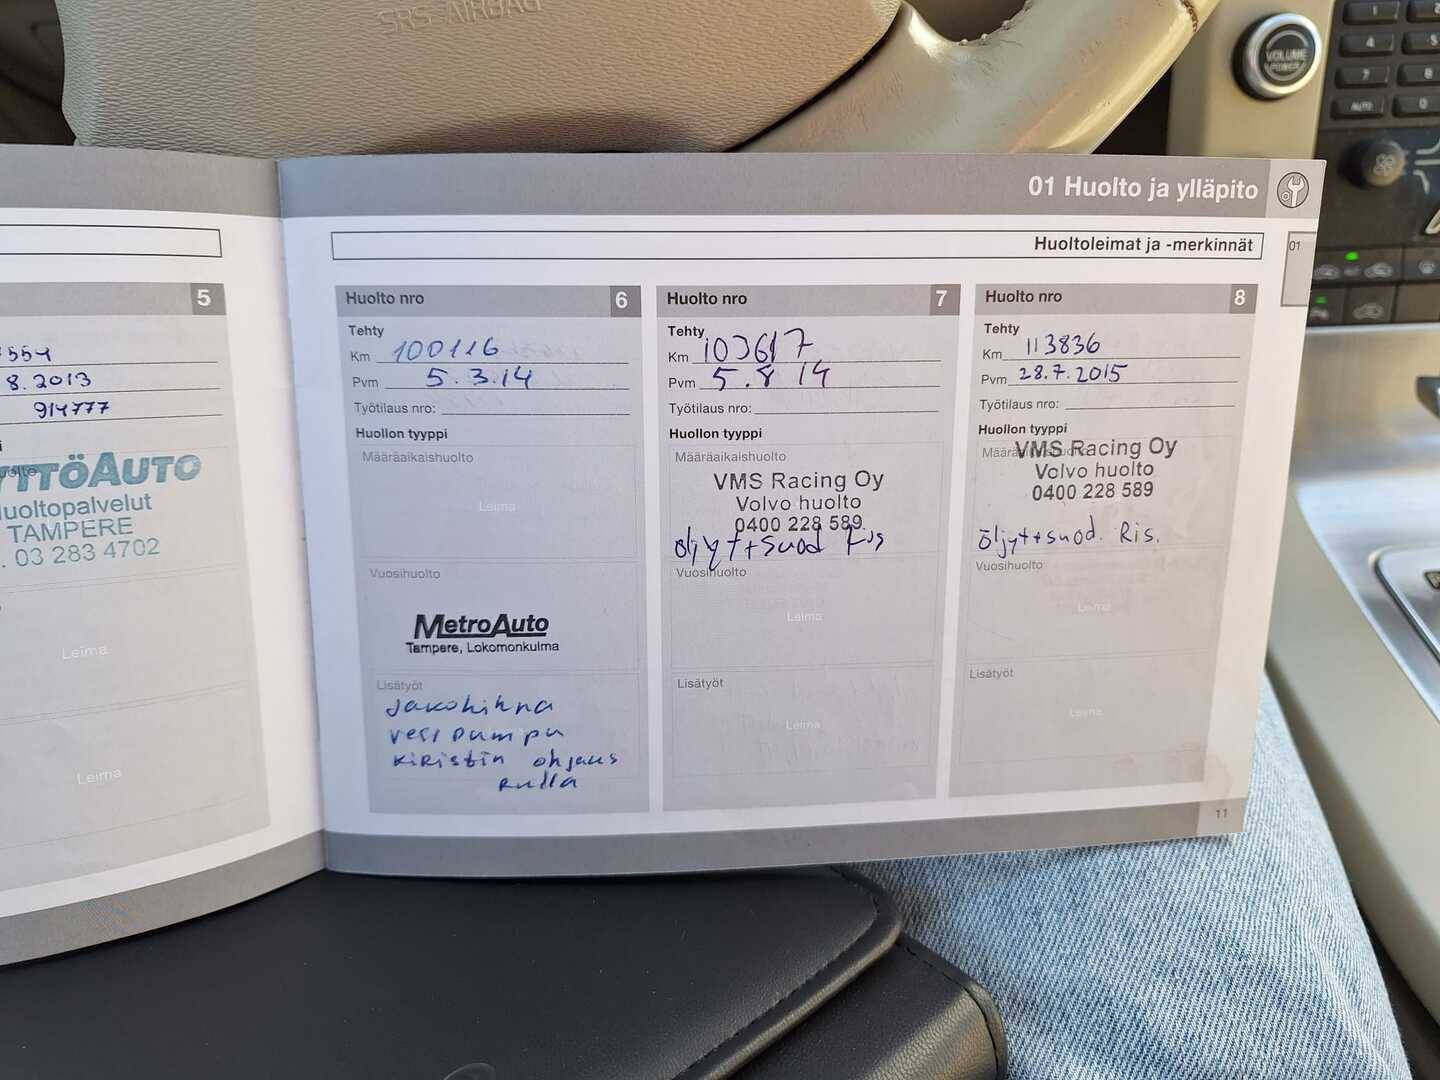 SRS AIRBAG
VOLUME
POWER
1
4
5
7
8
AUTO
0
01 Huolto ja ylläpito
Huoltoleimat ja -merkinnät
01
5
554
8.2013
914777
TTÖAUTO
uoltopalvelut
TAMPERE
. 03 283 4702
Leima
Leima
Huolto nro 6
Tehty
Km 100116
Pvm 5.3.14
Työtilaus nro:
Huollon tyyppi
Määräaikaishuolto
Leima
Vuosihuolto
MetroAuto
Tampere, Lokomonkulma
Lisätyöt
Jakohihna
vesi pumpu
kiristin ohjaus
rulla
Huolto nro 7
Tehty
Km 103617
Pvm 5.8 14
Työtilaus nro:
Huollon tyyppi
Määräaikaishuolto
VMS Racing Oy
Volvo huolto
0400 228 589
öljyt+suod Ris
Vuosihuolto
Leima
Lisätyöt
Leima
Huolto nro 8
Tehty
Km 113836
Pvm 28.7.2015
Työtilaus nro:
Huollon tyyppi
Määräaikaishuolto
VMS Racing Oy
Volvo huolto
0400 228 589
öljyt+suod. Ris.
Vuosihuolto
Leima
Lisätyöt
Leima
11